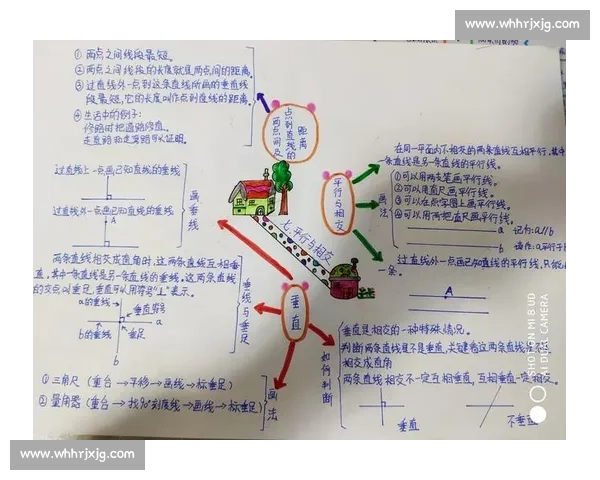 www.whhrjxjg.com
① 两点之间线段最短。
② 两点之间线段的长度就是两点间的距离。
③ 过直线外一点到这条直线所画的垂直线
段最短，它的长度叫作点到直线的距离。
④ 生活中的例子：
修路时把道路修直。
点到直线的
两点间及
距离
过直线上一点画已知直线的垂线
过直线外一点画已知直线的垂线
A
画垂线
两条直线相交成直角时，这两条直线互相垂
直，其中一条直线是另一条直线的垂线。这两条直线
的交点叫垂足，垂直可以用符号“⊥”表示。
a的垂线
垂直符号
a
b的垂线
垂足
b
垂线与垂足
① 三角尺（重合→平移→画线→标垂足）
② 量角器（重合→找90°刻度线→画线→标垂足）
画法
七、平行与相交
垂直
平行与相交
在同一平面内不相交的两条直线互相平行，其中一
条直线是另一条直线的平行线。
画法
① 可以用两支笔画平行线。
② 可以用直尺画平行线。
③ 可以在点字图上画平行线。
④ 可以用两把直尺画平行线。
a 记为：a//b
b 读作：a平行于
过直线外一点画已知直线的平行线，只能
一条。
A
如何判断
垂直是相交的一种特殊情况。
判断两条直线是不是垂直，关键看这两条直线是否
相交成直角
两条直线相交不一定互相垂直，互相垂直一定相交。
垂直
不垂直
SHOT ON MI 8 UD
AI DUAL CAMERA
www.whhrjxjg.com